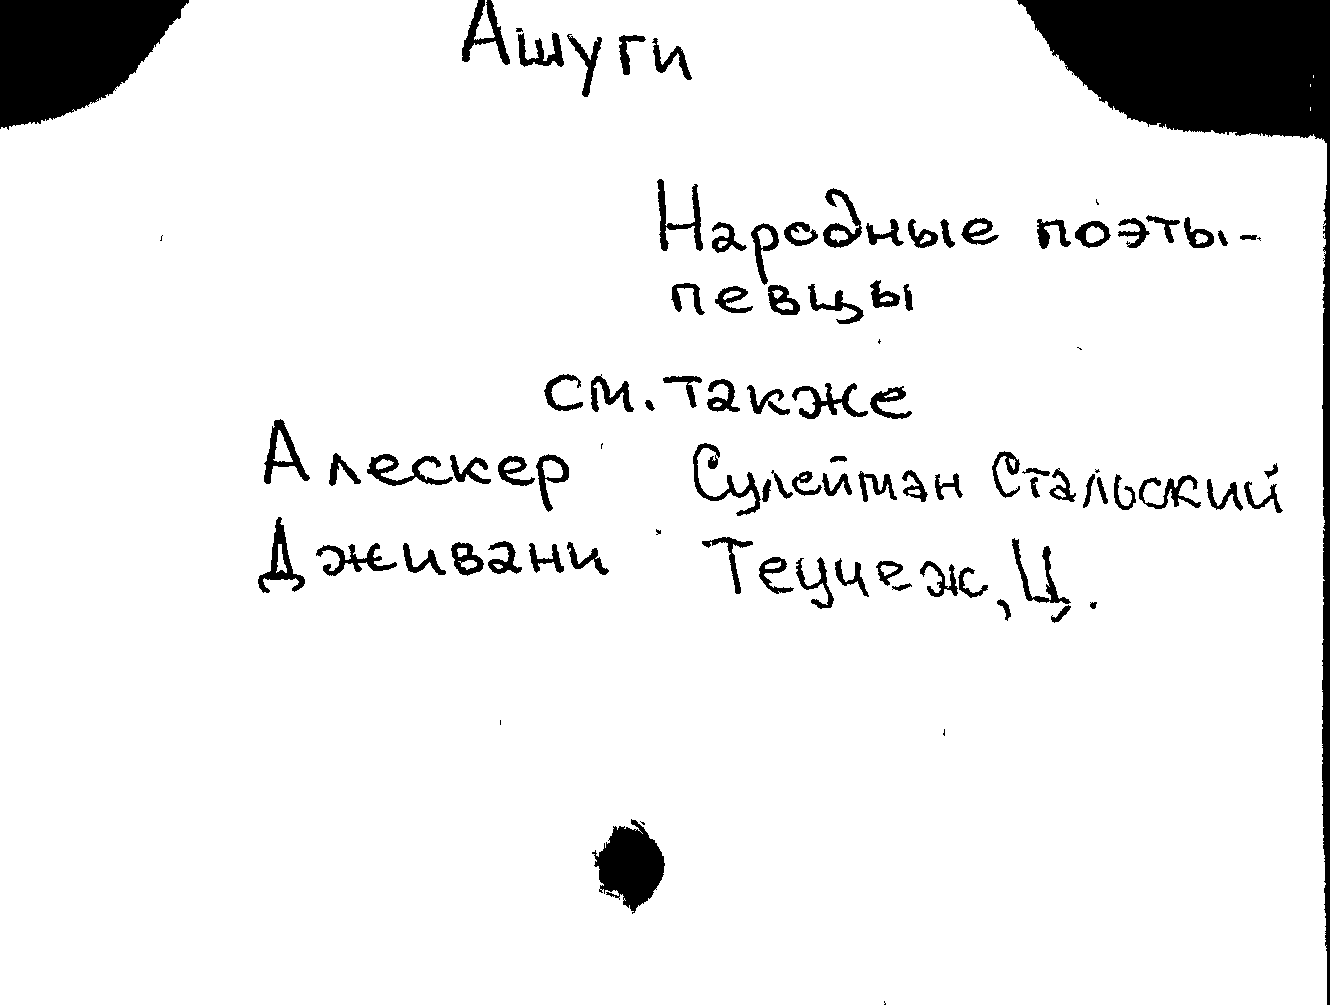 Ашуги
Народные поэты-
певцы
см. также
Алескер Сулейман Стальский
Дживани Теучеж, Ц.